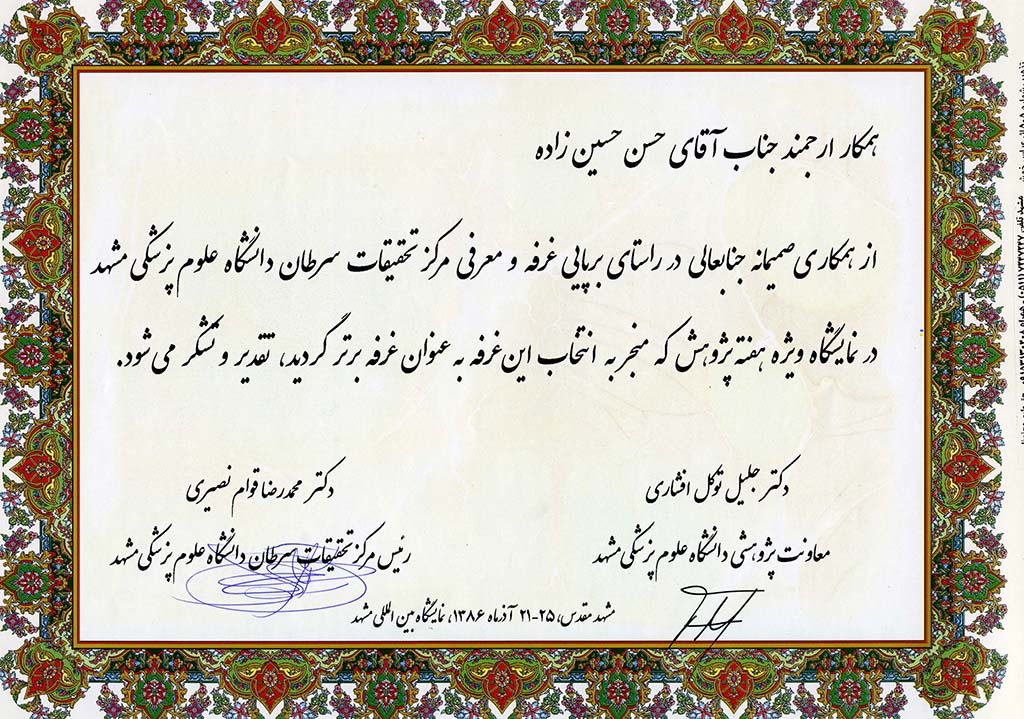 همکار ارجمند جناب آقای حسن حسین زاده
از همکاری صمیمانه جنابعالی در راستای برپایی غرفه و معرفی مرکز تحقیقات سرطان دانشگاه علوم پزشکی مشهد
در نمایشگاه ویژه هفته پژوهش که منجر به انتخاب این غرفه به عنوان غرفه برتر گردید، تقدیر و تشکر می شود.
دکتر جلیل توکل افشاری
معاونت پژوهشی دانشگاه علوم پزشکی مشهد
دکتر محمدرضا قوام نصیری
رئیس مرکز تحقیقات سرطان دانشگاه علوم پزشکی مشهد
مشهد مقدس، ۲۵-۲۱ آذرماه ۱۳۸۶، نمایشگاه بین المللی مشهد